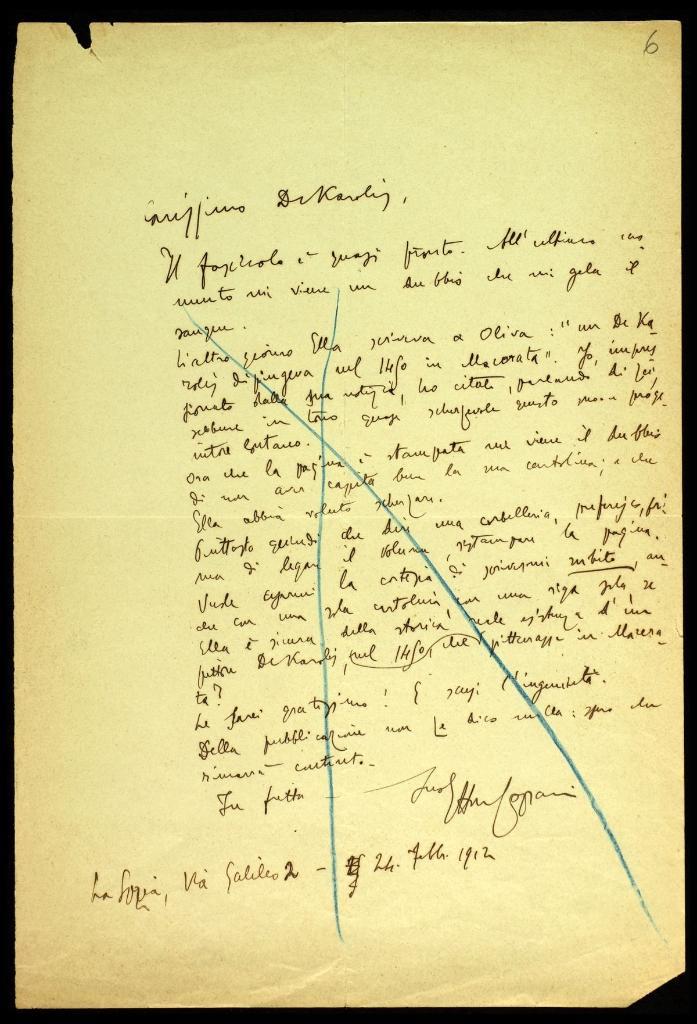 6
Carissimo De Karolis,
Il fascicolo è quasi pronto. All'ultimo mo-
mento mi viene un dubbio che mi gela il
sangue.
L'altro giorno Ella scriveva a Oliva: "un De Ka-
rolis dipingeva nel 1450 in Macerata". Io, impres-
sionato dalla sua notizia, ho citato, parlando di Lei,
sebbene in tono quasi scherzevole questo suo proge-
nitore lontano.
Ora che la pagina è stampata me viene il dubbio
di non aver capita ben la sua cartolina; e che
Ella abbia voluto scherzare.
Piuttosto quindi che dire una corbelleria, preferisco, pri-
ma di legare il volume, ristampare la pagina.
Vuole usarmi la cortesia di scrivermi subito, an-
che con una sola cartolina, con una riga sola se
Ella è sicuro della storica, reale esistenza d'un
pittore De Karolis, nel 1450, che pitturasse in Macera-
ta?
Le sarei gratissimo! E scusi l'ingenuità.
Della pubblicazione non Le dico nulla: spero che
rimarrà contento.
In fretta —
Ettore Cozzani
La Spezia, Via Galileo 2 - 24. Febb. 1912